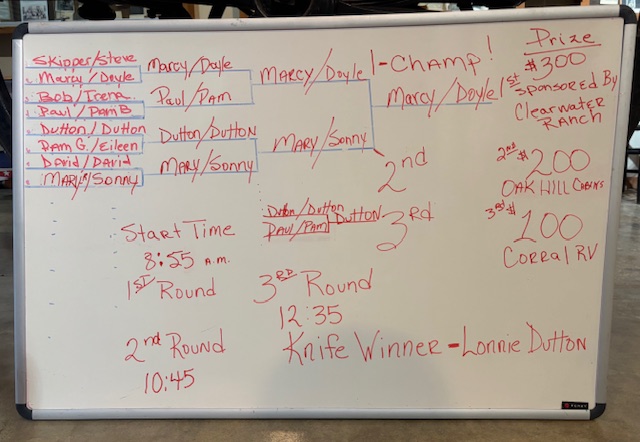 Skipper/Steve
Marcy/Doyle
Bob/Irena
Paul/Pam B
Dutton/Dutton
Pam G./Eileen
David/David
Mary/Sonny
Marcy/Doyle
Paul/Pam
Dutton/Dutton
Mary/Sonny
Marcy/Doyle
Mary/Sonny
1-Champ!
Marcy/Doyle 1st
2nd
Dutton/Dutton
Paul/Pam
Dutton
3rd
Prize
$300
Sponsored By
Clearwater
Ranch
2nd $200
Oak Hill Cabins
3rd $100
Corral RV
Start Time
8:55 A.M.
1st Round
2nd Round
10:45
3rd Round
12:35
Knife Winner - Lonnie Dutton